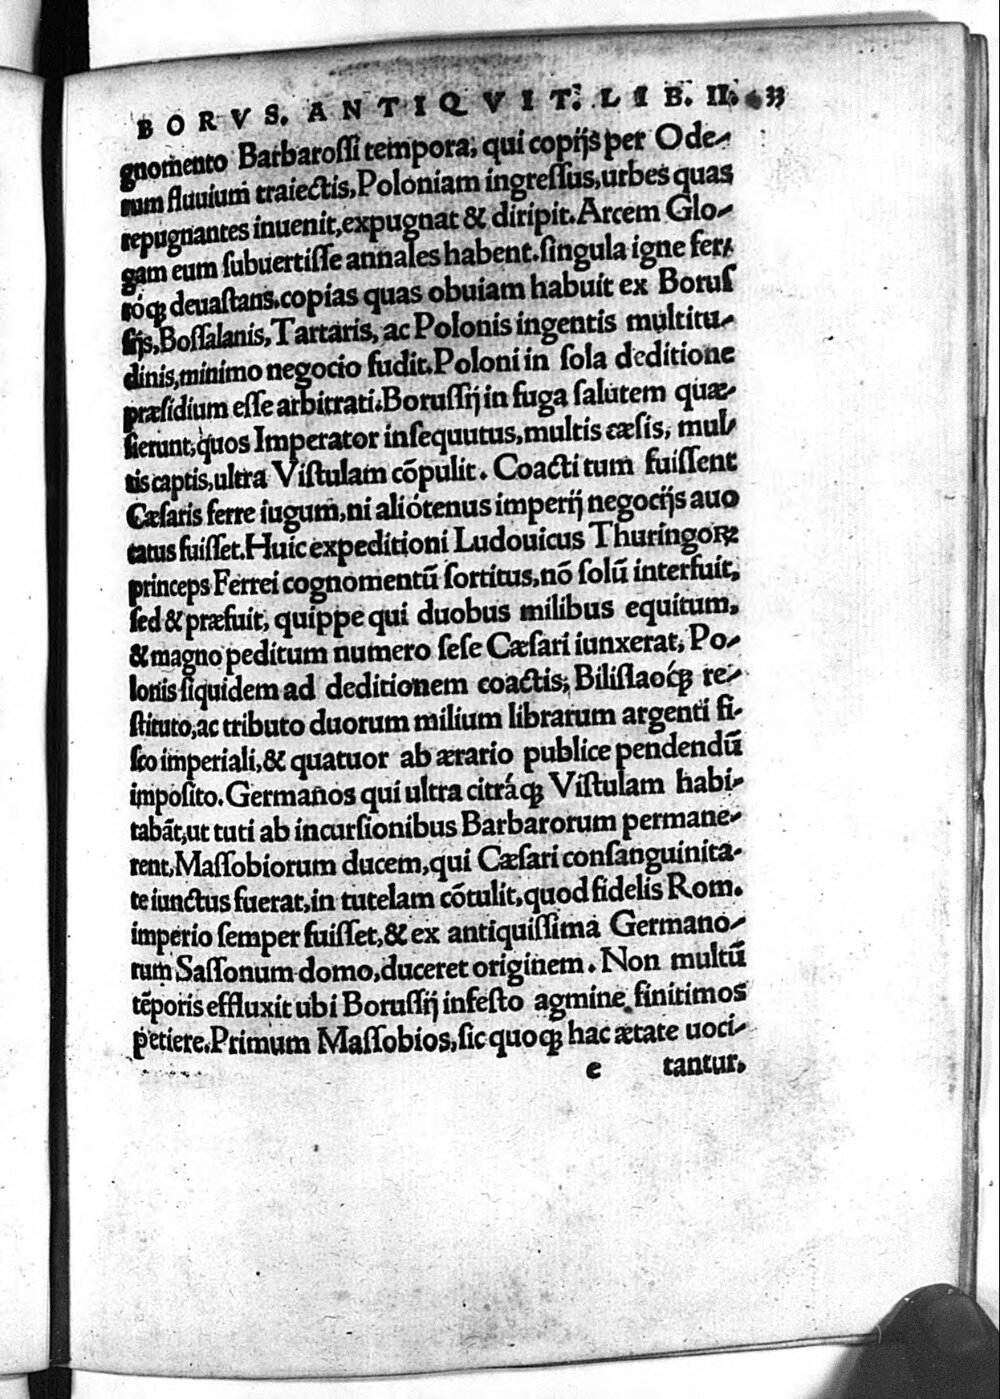 BORVS. ANTIQVIT. LIB. II. 33
gnomento Barbarossi tempora, qui copijs per Ode-
rum fluuium traiectis, Poloniam ingressus, urbes quas
repugnantes inuenit, expugnat & diripit. Arcem Glo-
gam eum subuertisse annales habent. singula igne fer-
róq; deuastans. copias quas obuiam habuit ex Borus
sijs, Bossalanis, Tartaris, ac Polonis ingentis multitu-
dinis, minimo negocio fudit. Poloni in sola deditione
præsidium esse arbitrati. Borussij in fuga salutem quæ-
sierunt, quos Imperator insequutus, multis cæsis, mul-
tis captis, ultra Vistulam cōpulit. Coacti tum fuissent
Cæsaris ferre iugum, ni aliótenus imperij negocijs auo
catus fuisset. Huic expeditioni Ludouicus Thuringoꝝ
princeps Ferrei cognomentū sortitus, nō solū interfuit,
sed & præfuit, quippe qui duobus milibus equitum,
& magno peditum numero sese Cæsari iunxerat, Po-
lonis siquidem ad deditionem coactis, Bilislaoq́; re-
stituto, ac tributo duorum milium librarum argenti fi-
sco imperiali, & quatuor ab ærario publice pendendū
imposito. Germanos qui ultra citráq; Vistulam habi-
tabāt, ut tuti ab incursionibus Barbarorum permane-
rent, Massobiorum ducem, qui Cæsari consanguinita-
te iunctus fuerat, in tutelam cōtulit, quod fidelis Rom.
imperio semper fuisset, & ex antiquissima Germano-
rum Sassonum domo, duceret originem. Non multū
tēporis effluxit ubi Borussij infesto agmine finitimos
petiere. Primum Massobios, sic quoq; hac ætate uoci-
e tantur.